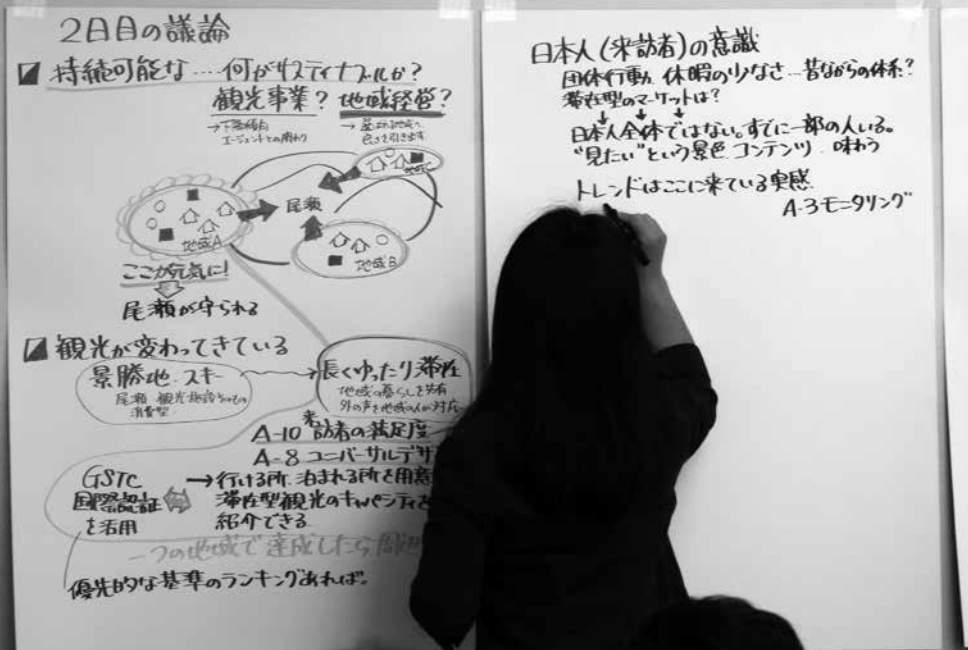 2日目の議論
持続可能な‥‥何がサスティナブルか?
観光事業? 地域経営?
→下降傾向
エージェントとの関わり
尾瀬
地域A
地域B
ここが元気に!
尾瀬が守られる
観光が変わってきている
景勝地・スキー
尾瀬 観光施設
消費型
長くゆったり滞在
地域の暮らしを共有
外の声を地域の人が対応
A-10 来訪者の満足度
A-8 ユニバーサルデザ
GSTC
国際認証
を活用
→行ける所、泊まれる所を用意
滞在型観光のキャパシティを
紹介できる
一つの地域で達成したら、周辺
優先的な基準のランキングあれば。
日本人(来訪者)の意識
団体行動、休暇の少なさ‥昔ながらの体系?
滞在型のマーケットは?
↓ ↓ ↓
日本人全体ではない。すでに一部の人いる。
"見たい"という景色 コンテンツ 味わう
トレンドはここに来ている実感
A-3モニタリング